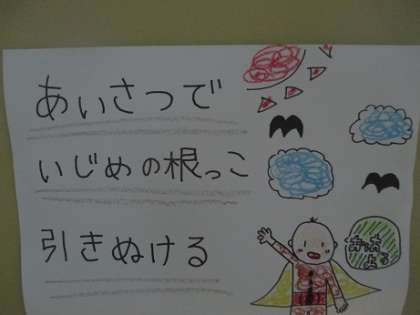 あいさつで
いじめの根っこ
引きぬける